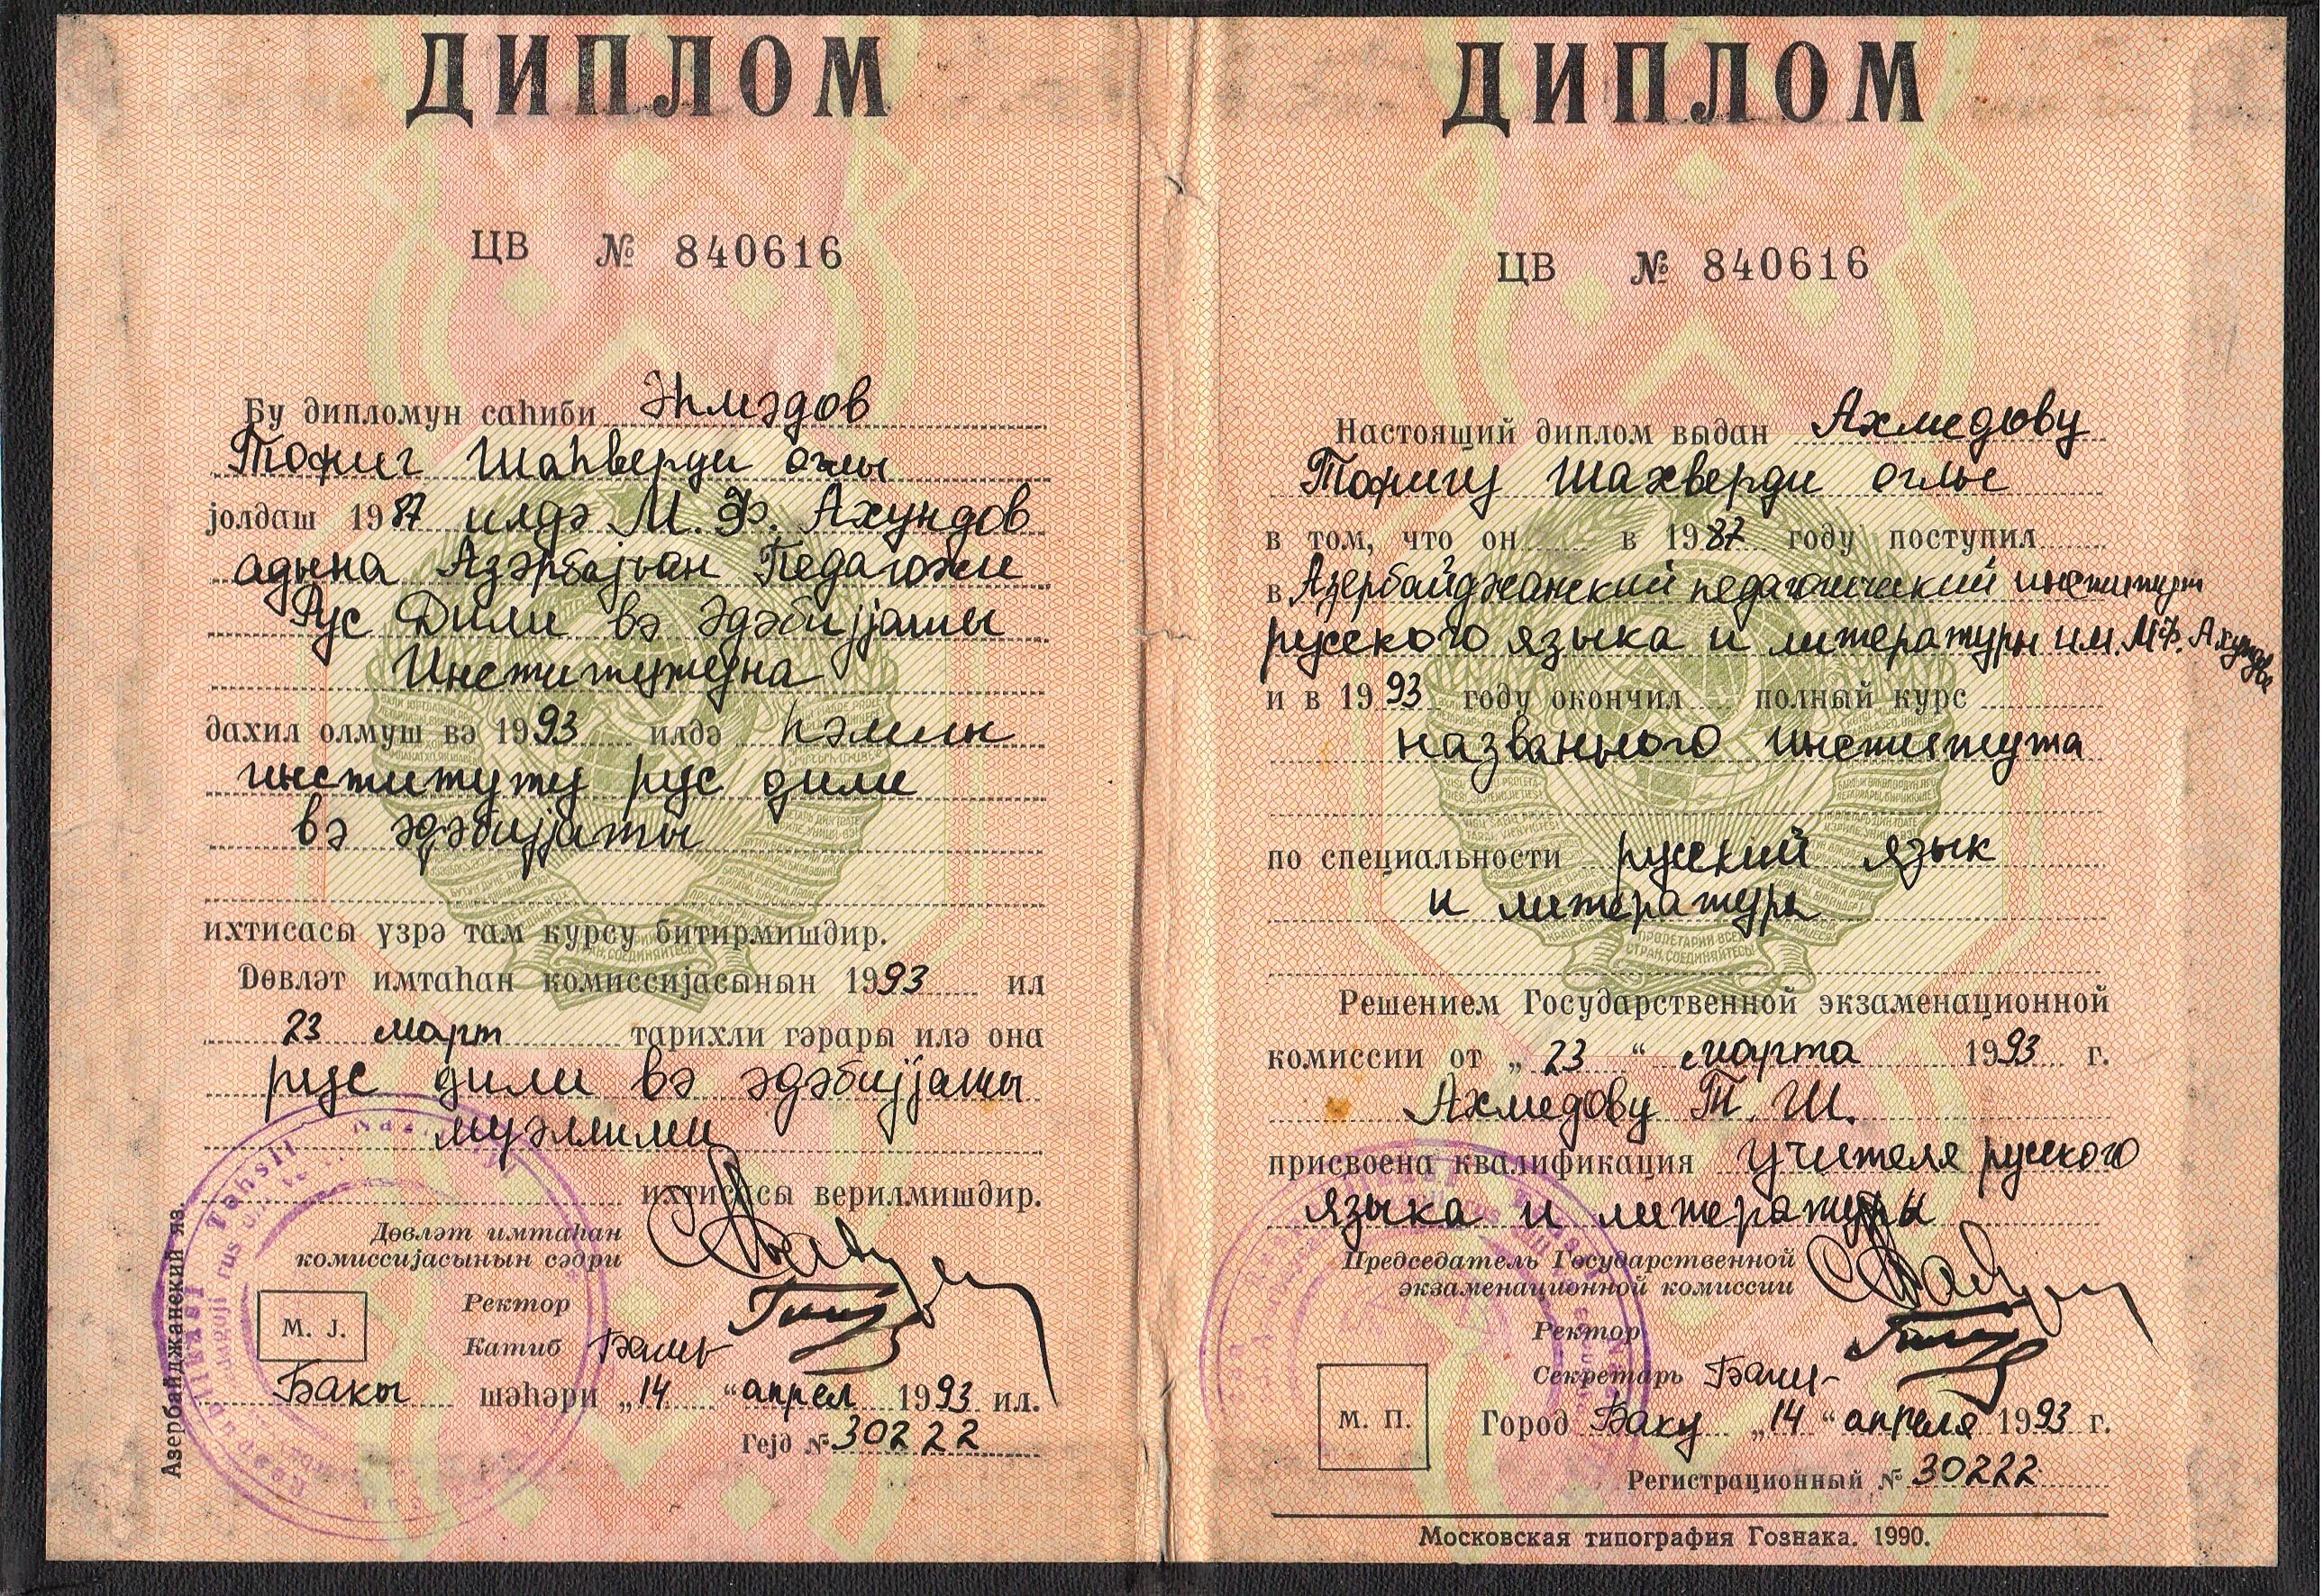 ДИПЛОМ
ЦВ № 840616
Бу дипломун саһиби Әһмәдов
Тофиг Шаһверди оғлы
јолдаш 1987 илдә М. Ф. Ахундов
адына Азәрбајҹан Педагожи
Рус Дили вә Әдәбијјаты
Институтуна
дахил олмуш вә 1993 илдә һәмин
институту рус дили
вә әдәбијјаты
ихтисасы үзрә там курсу битирмишдир.
Дөвләт имтаһан комиссијасынын 1993 ил
23 март тарихли гәрары илә она
рус дили вә әдәбијјаты
муәллими
ихтисасы верилмишдир.
Дөвләт имтаһан
комиссијасынын сәдри
Ректор
М. Ј.
Катиб
Бакы шәһәри „14 “ апрел 1993 ил.
Гејд № 30222
Азербайджанский яз.
ДИПЛОМ
ЦВ № 840616
Настоящий диплом выдан Ахмедову
Тофигу Шахверди оглы
в том, что он в 1987 году поступил
в Азербайджанский педагогический институт
русского языка и литературы им. М.Ф. Ахундова
и в 1993 году окончил полный курс
названного института
по специальности русский язык
и литература
Решением Государственной экзаменационной
комиссии от „ 23 “ марта 1993 г.
Ахмедову Т. Ш.
присвоена квалификация учителя русского
языка и литературы
Председатель Государственной
экзаменационной комиссии
Ректор
Секретарь
М. П.
Город Баку „14 “ апреля 1993 г.
Регистрационный № 30222
Московская типография Гознака. 1990.